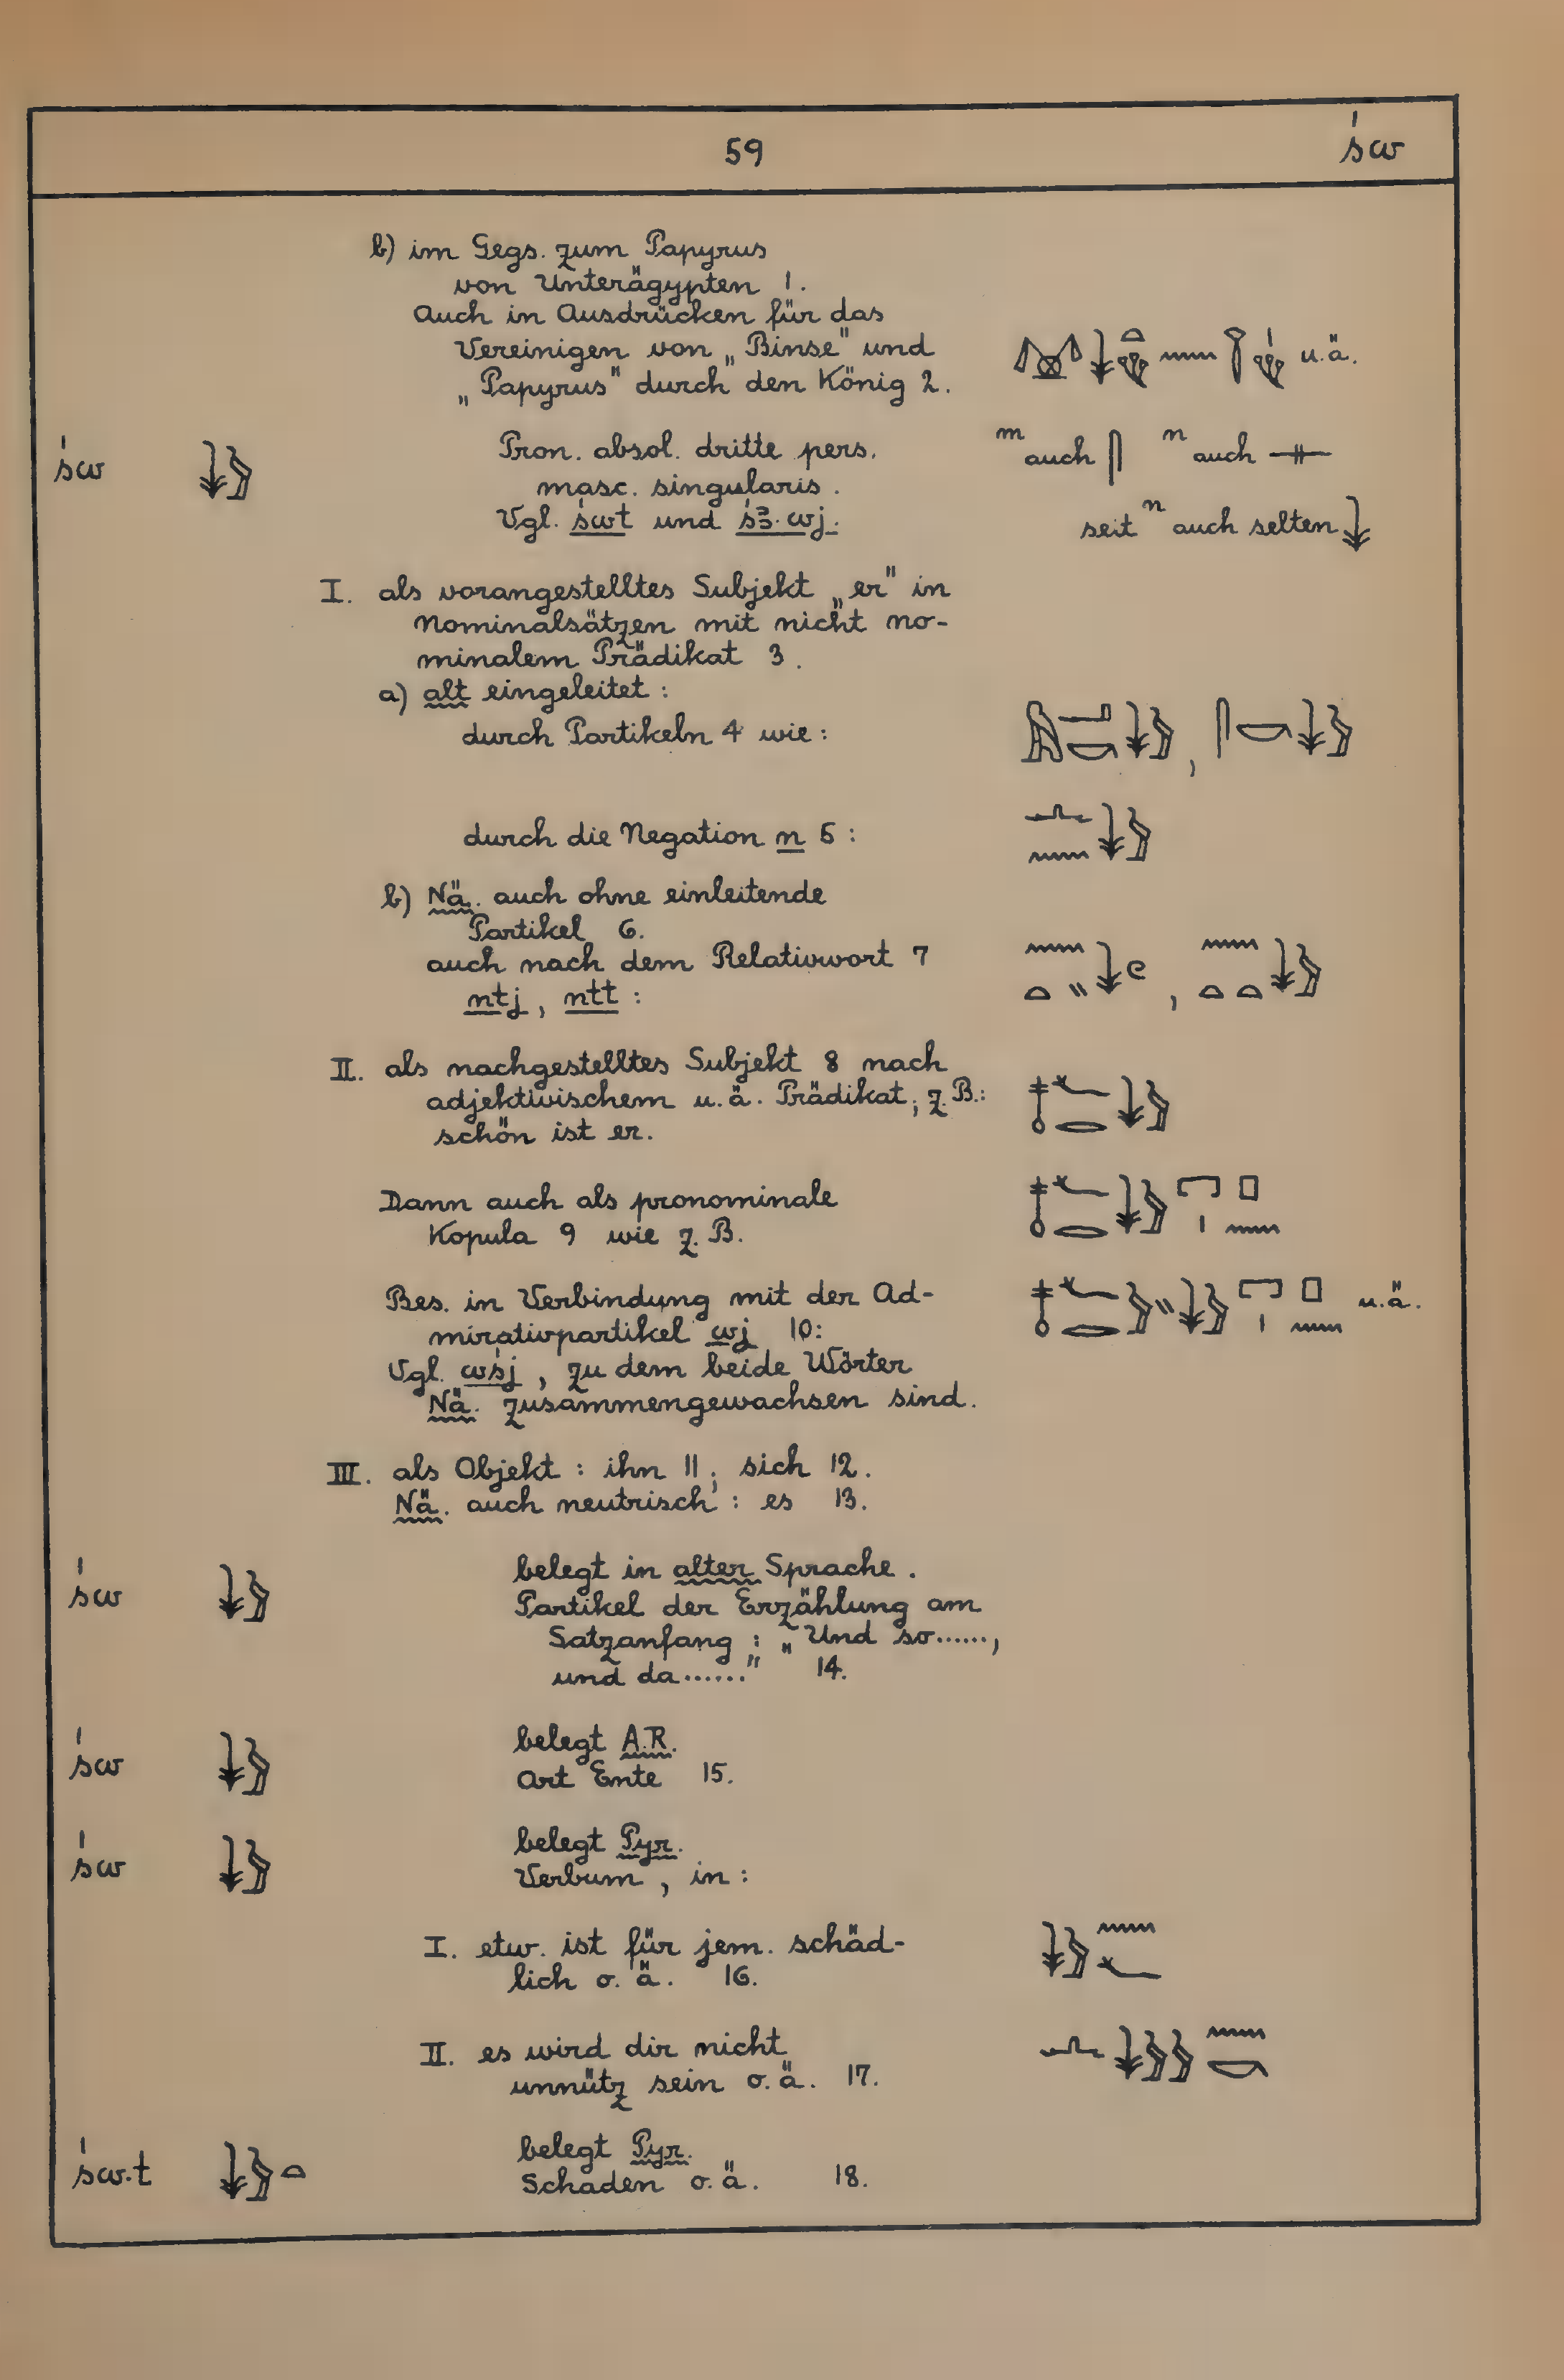 59 św
b) im Gegs. zum Papyrus
von Unterägypten 1.
Auch in Ausdrücken für das
Vereinigen von „Binse" und
„Papyrus" durch den König 2. u.ä.
św Pron. absol. dritte pers. m auch n auch
masc. singularis.
Vgl. śwt und śꜣ.wj. seit n auch selten
I. als vorangestelltes Subjekt „er" in
Nominalsätzen mit nicht no-
minalem Prädikat 3.
a) alt eingeleitet :
durch Partikeln 4 wie : ,
durch die Negation n 5 :
b) Nä. auch ohne einleitende
Partikel 6.
auch nach dem Relativwort 7
ntj, ntt : ,
II. als nachgestelltes Subjekt 8 nach
adjektivischem u.ä. Prädikat, z.B.:
schön ist er.
Dann auch als pronominale
Kopula 9 wie z.B.
Bes. in Verbindung mit der Ad- u.ä.
mirativpartikel wj 10:
Vgl. wśj, zu dem beide Wörter
Nä. zusammengewachsen sind.
III. als Objekt : ihn 11, sich 12.
Nä. auch neutrisch : es 13.
św belegt in alter Sprache.
Partikel der Erzählung am
Satzanfang : „Und so......,
und da......" 14.
św belegt A.R.
Art Ente 15.
św belegt Pyr.
Verbum, in :
I. etw. ist für jem. schäd-
lich o.ä. 16.
II. es wird dir nicht
unnütz sein o.ä. 17.
św.t belegt Pyr.
Schaden o.ä. 18.